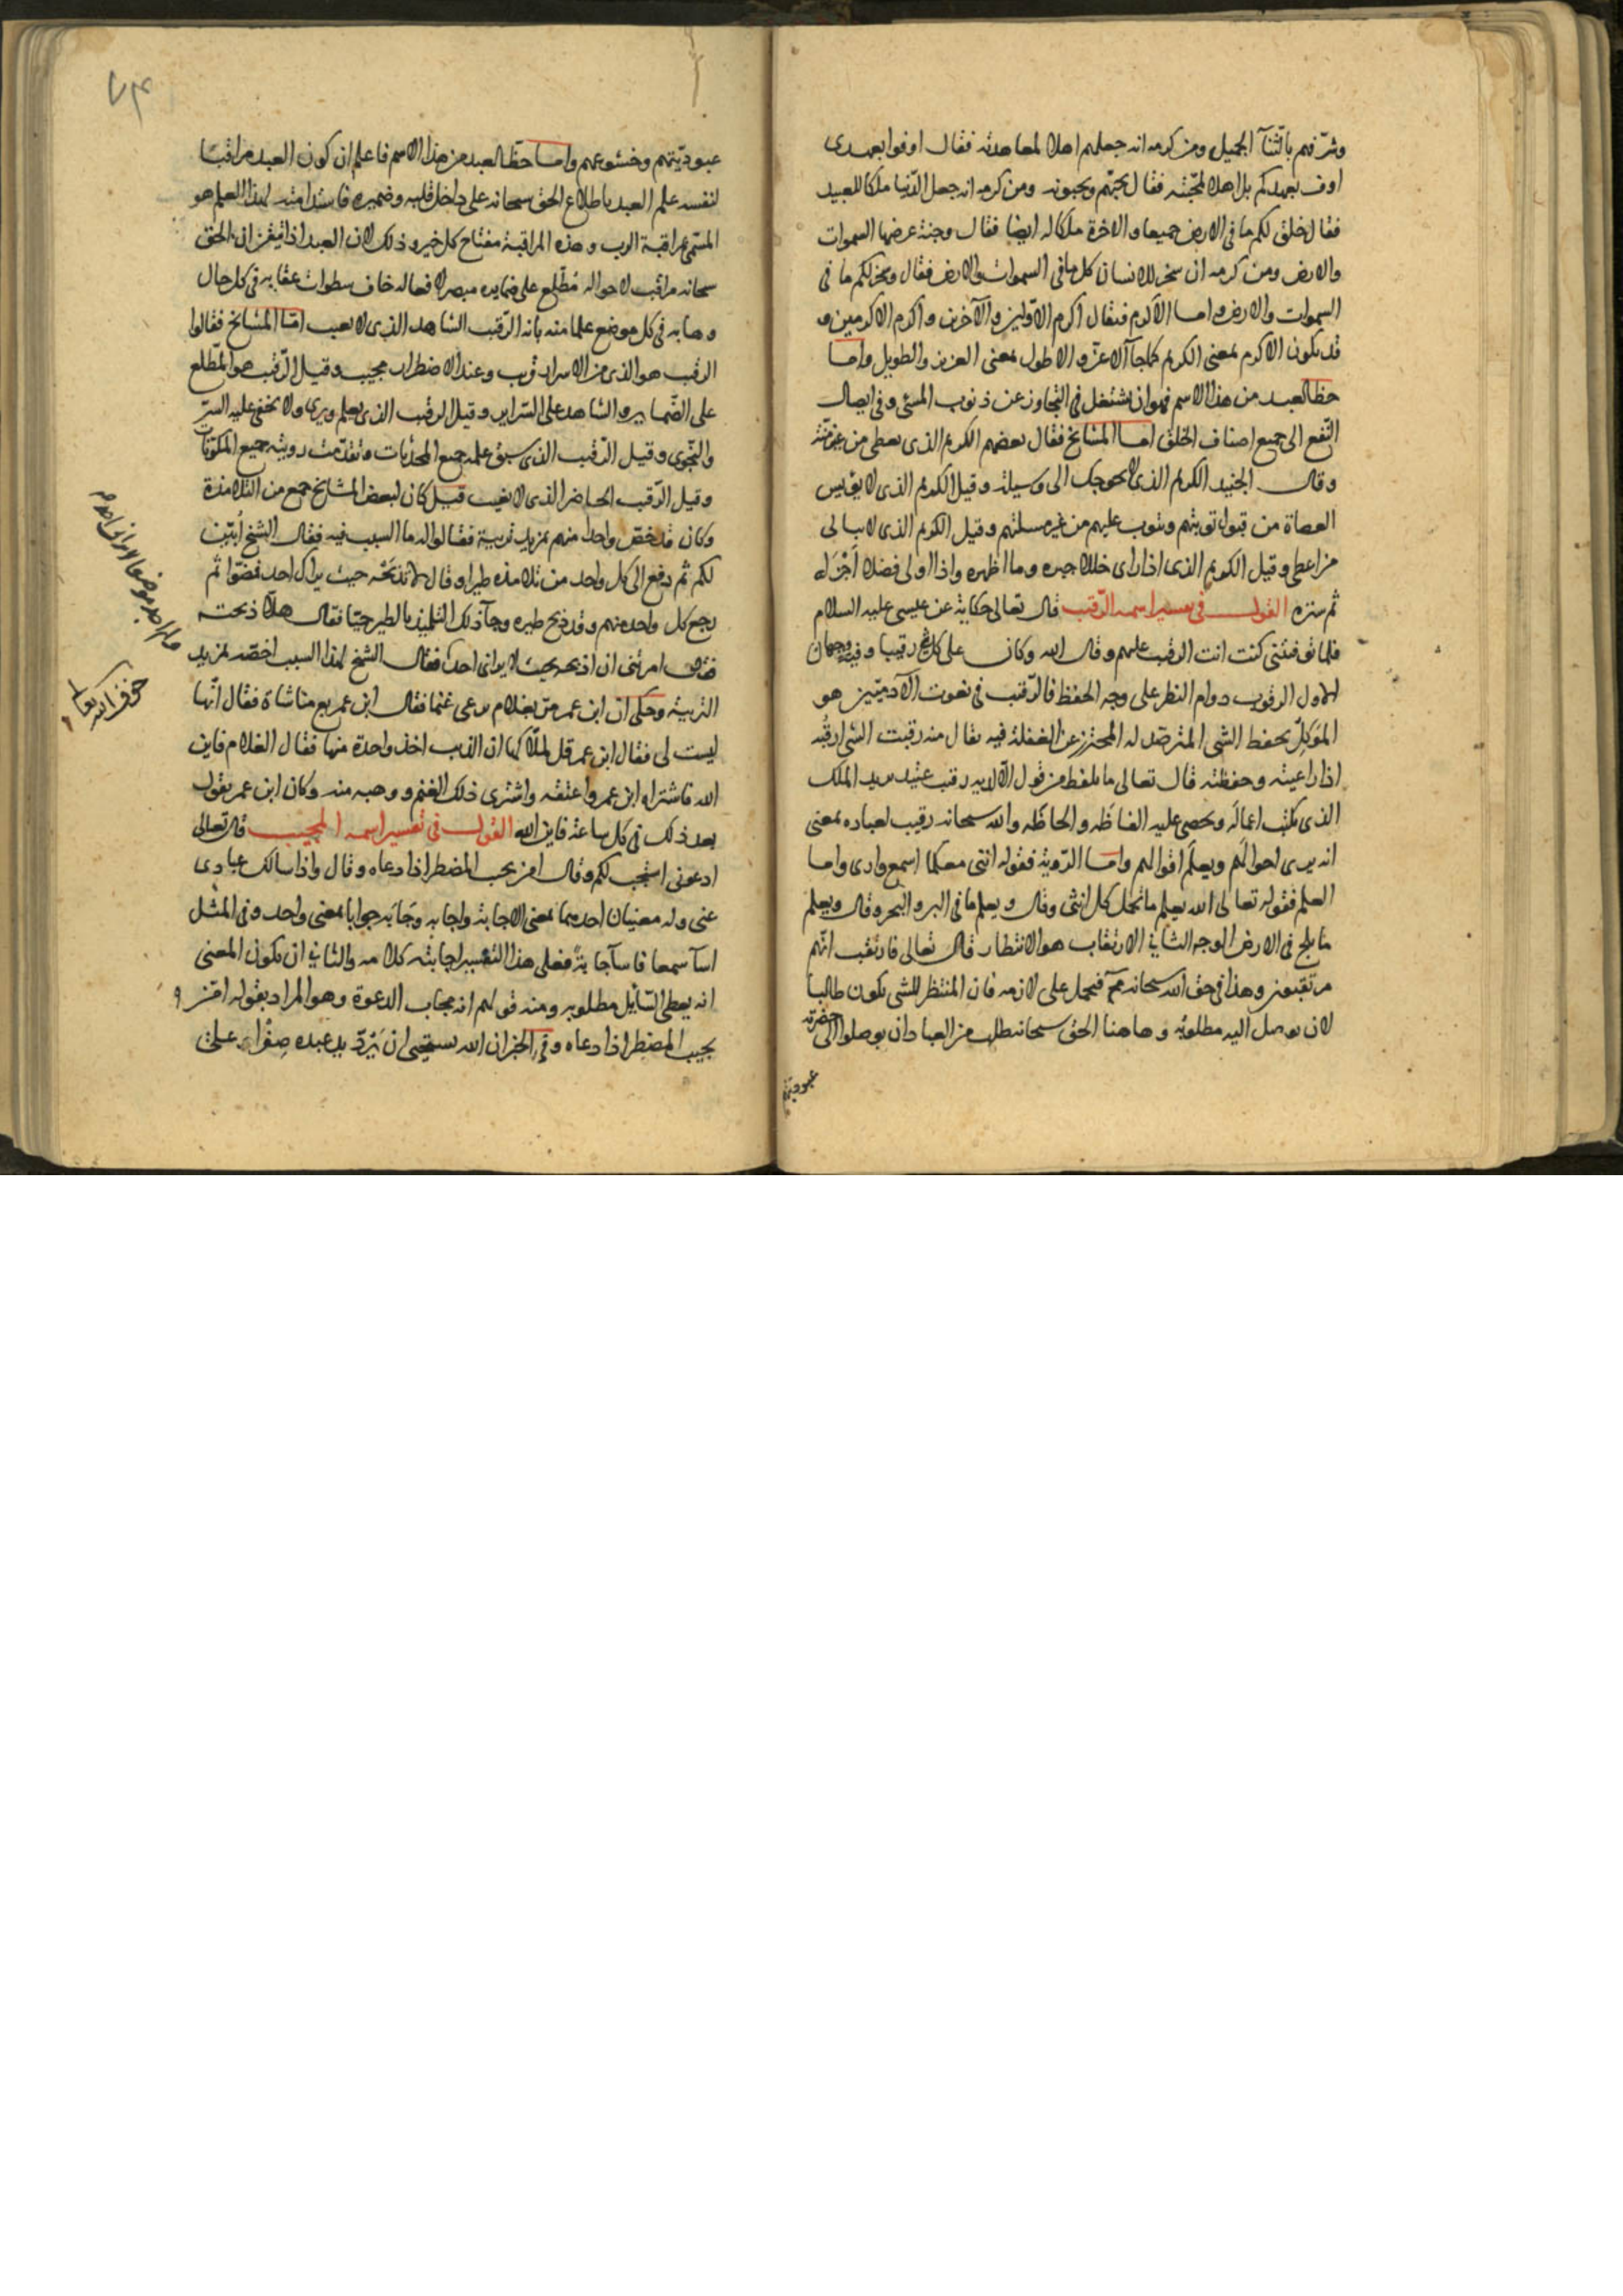 وشرّفهم بالثنآ الجميل ومن كرمه انه جعلهم اهلا لمعاهدته فقال اوفوا بعهدى
اوف بعهدكم بل اهلا لمحبّته فقال يحبّهم ويحبونه ومن كرمه انه جعل الدّنيا ملكا للعبيد
فقال خلق لكم ما فى الارض جميعا والاخرة ملكا له ايضا فقال وجنة عرضها السموات
والارض ومن كرمه ان سخر للانسان كل ما فى السموات والارض فقال وسخر لكم ما فى
السموات والارض واما الاكرم فنقال اكرم الاوّلين والآخرين واكرم الاكرمين و
قد يكون الاكرم بمعنى الكريم كما جآ الاعز والاطول بمعنى العزيز والطويل واما
حظ العبد من هذا الاسم فهو ان يشتغل فى التجاوز عن ذنوب المسئ وفى ايصال
النّفع الى جميع اصناف الخلق اما المشايخ فقال بعضهم الكريم الذى يعطى من غير منّة
وقال الجنيد الكريم الذى لا يحوجك الى وسيلة وقيل الكريم الذى لا يؤيس
العصاة من قبول توبتهم ويتوب عليهم من غير مسئلتهم وقيل الكريم الذى لا يبالى
من اعطى وقيل الكريم الذى اذا راى خللا جبره وما اظهره واذا اولى فضلا اجزله
ثم ستره القول فى تفسير اسمه الرّقيب قال تعالى حكاية عن عيسى عليه السلام
فلما توفيتنى كنت انت الرقيب عليهم وقال الله وكان على كل شئ رقيبا وفيه وجهان
الاول الرقوب دوام النظر على وجه الحفظ فالرّقيب فى نعوت الآدميّين هو
الموكل بحفظ الشى المترصّد له المحترز عن الغفلة فيه يقال منه رقبت الشى ارقبه
اذا راعيته وحفظته قال تعالى ما يلفظ من قول الا لديه رقيب عتيد يريد الملك
الذى يكتب اعماله ويحصى عليه الفاظه والحاظه والله سبحانه رقيب لعباده بمعنى
انه يرى احوالهم ويعلم اقوالهم واما الرّوية فقوله اننى معكما اسمع وارى واما
العلم فقوله تعالى الله يعلم ما تحمل كل انثى وقال ويعلم ما فى البر والبحر وقال ويعلم
ما يلج فى الارض الوجه الثانى الارتقاب هو الانتظار قال تعالى فارتقب انهم
مرتقبون وهذا فى حق الله سبحانه مح فيحمل على لازمه فان المنتظر للشى يكون طالبا
لان يوصل اليه مطلوبه وهاهنا الحق سبحانه طلب من العباد ان يوصلوا الى حضرته
عبوديتهم
عبوديّتهم وخشوعهم واما حظّ العبد من هذا الاسم فاعلم ان كون العبد مراقبا
لنفسه علم العبد باطلاع الحق سبحانه على داخل قلبه وضميره فاستدامته لهذا العلم هو
المسمّى بمراقبة الرب وهذه المراقبة مفتاح كل خير وذلك لان العبد اذا تيقّن ان الحق
سبحانه مراقب لاحواله مطّلع على ضمايره مبصر لافعاله خاف سطوات عقابه فى كل حال
وهابه فى كل موضع علما منه بانه الرّقيب الشاهد الذى لا يغيب امّا المشايخ فقالوا
الرقيب هو الذى من الاسرار قريب وعند الاضطرار مجيب وقيل الرّقيب هو المطّلع
على الضّماير والشاهد على السّراير وقيل الرقيب الذى يعلم ويرى ولا يخفى عليه السّر
والنّجوى وقيل الرّقيب الذى سبق علمه جميع المحدثات وتقدّمت رويته جميع المكوّنات
وقيل الرّقيب الحاضر الذى لا يغيب قيل كان لبعض المشايخ جمع من التلامذة
وكان قد خصّ واحدا منهم بمزيد تربية فقالوا له ما السبب فيه فقال الشيخ ابيّن
لكم ثم دفع الى كل واحد من تلامذه طيرا وقال لا تذبحه حيث يراك احد فمضوا ثم
رجع كل واحد منهم وقد ذبح طيره وجآ ذلك التلميذ بالطير حيّا فقال هلّا ذبحته
فقال امرتنى ان اذبحه بحيث لا يرانى احد فقال الشيخ لهذا السبب اخصّه بمزيد
التربية وحكى ان ابن عمر مرّ بغلام يرعى غنما فقال ابن عمر بع منا شاة فقال انّها
ليست لى فقال ابن عمر قل لملّاكها ان الذيب اخذ واحدة منها فقال الغلام فاين
الله فاشتراه ابن عمر واعتقه واشترى ذلك الغنم ووهبه منه وكان ابن عمر يقول
بعد ذلك فى كل ساعة فاين الله القول فى تفسير اسمه المجيب قال تعالى
ادعونى استجب لكم وقال امن يجيب المضطر اذا دعاه وقال واذا سالك عبادى
عنى وله معنيان احدهما بمعنى الاجابة واجابه وجابه جوابا بمعنى واحد وفى المثل
اسآ سمعا فاسآ جابة فعلى هذا التفسير اجابته كلامه والثانى ان يكون المعنى
انه يعطى السّآئل مطلوبه ومنه قولهم انه مجاب الدعوة وهو المراد بقوله امّن
يجيب المضطر اذا دعاه وفى الخبر ان الله يستحيى ان يردّ يد عبده صفرا